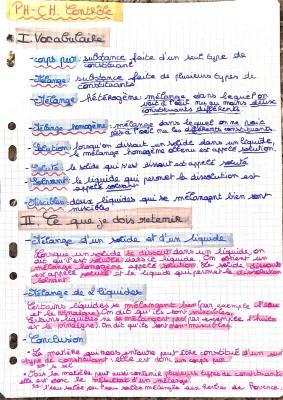 PH-CH Contrôle
I Vocabulaire
-corps pur: substance faite d'un seul type de constituant
-Mélange: substance faite de plusieurs types de constituants
-Mélange hétérogène: mélange dans lequel on voit à l'oeil nu au moins deux constituants différents
-Mélange homogène: mélange dans lequel on ne voit pas à l'oeil nu les différents constituants.
-Solution: lorsqu'on dissout un solide dans un liquide, le mélange homogène obtenu est appelé solution.
-Soluté: le solide qui s'est dissout est appelé soluté
-Solvant: le liquide qui permet la dissolution est appelé solvant
-Miscibles: deux liquides qui se mélangent bien sont miscibles
II Ce que je dois retenir
-Mélange d'un solide et d'un liquide
Lorsque un solide se dissout dans un liquide, on dit qu'il est soluble dans ce liquide. On obtient un mélange homogène appelé solution. Le solide dissout est appelé soluté et le liquide qui permet la dissolution solvant
-Mélange de 2 liquides
Certains liquides se mélangent bien (par exemple l'eau et le vinaigre) On dit qu'ils sont miscibles.
Certains liquides ne se mélangent pas (par exemple l'huile et le vinaigre). On dit qu'ils sont non-miscibles.
-Conclusion
La matière qui nous entoure peut être constitué d'un seul type de constituant elle est donc un corps pur.
Mais la matière peut aussi contenir plusieurs types de constituants elle est donc le résultat d'un mélange.
L'eau salée ou l'eau mélangée aux herbes de Provence.